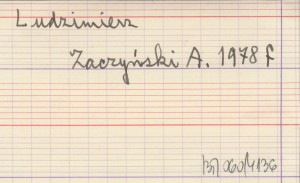 Ludzimierz
Zaczyński A. 1978 f
060/4136